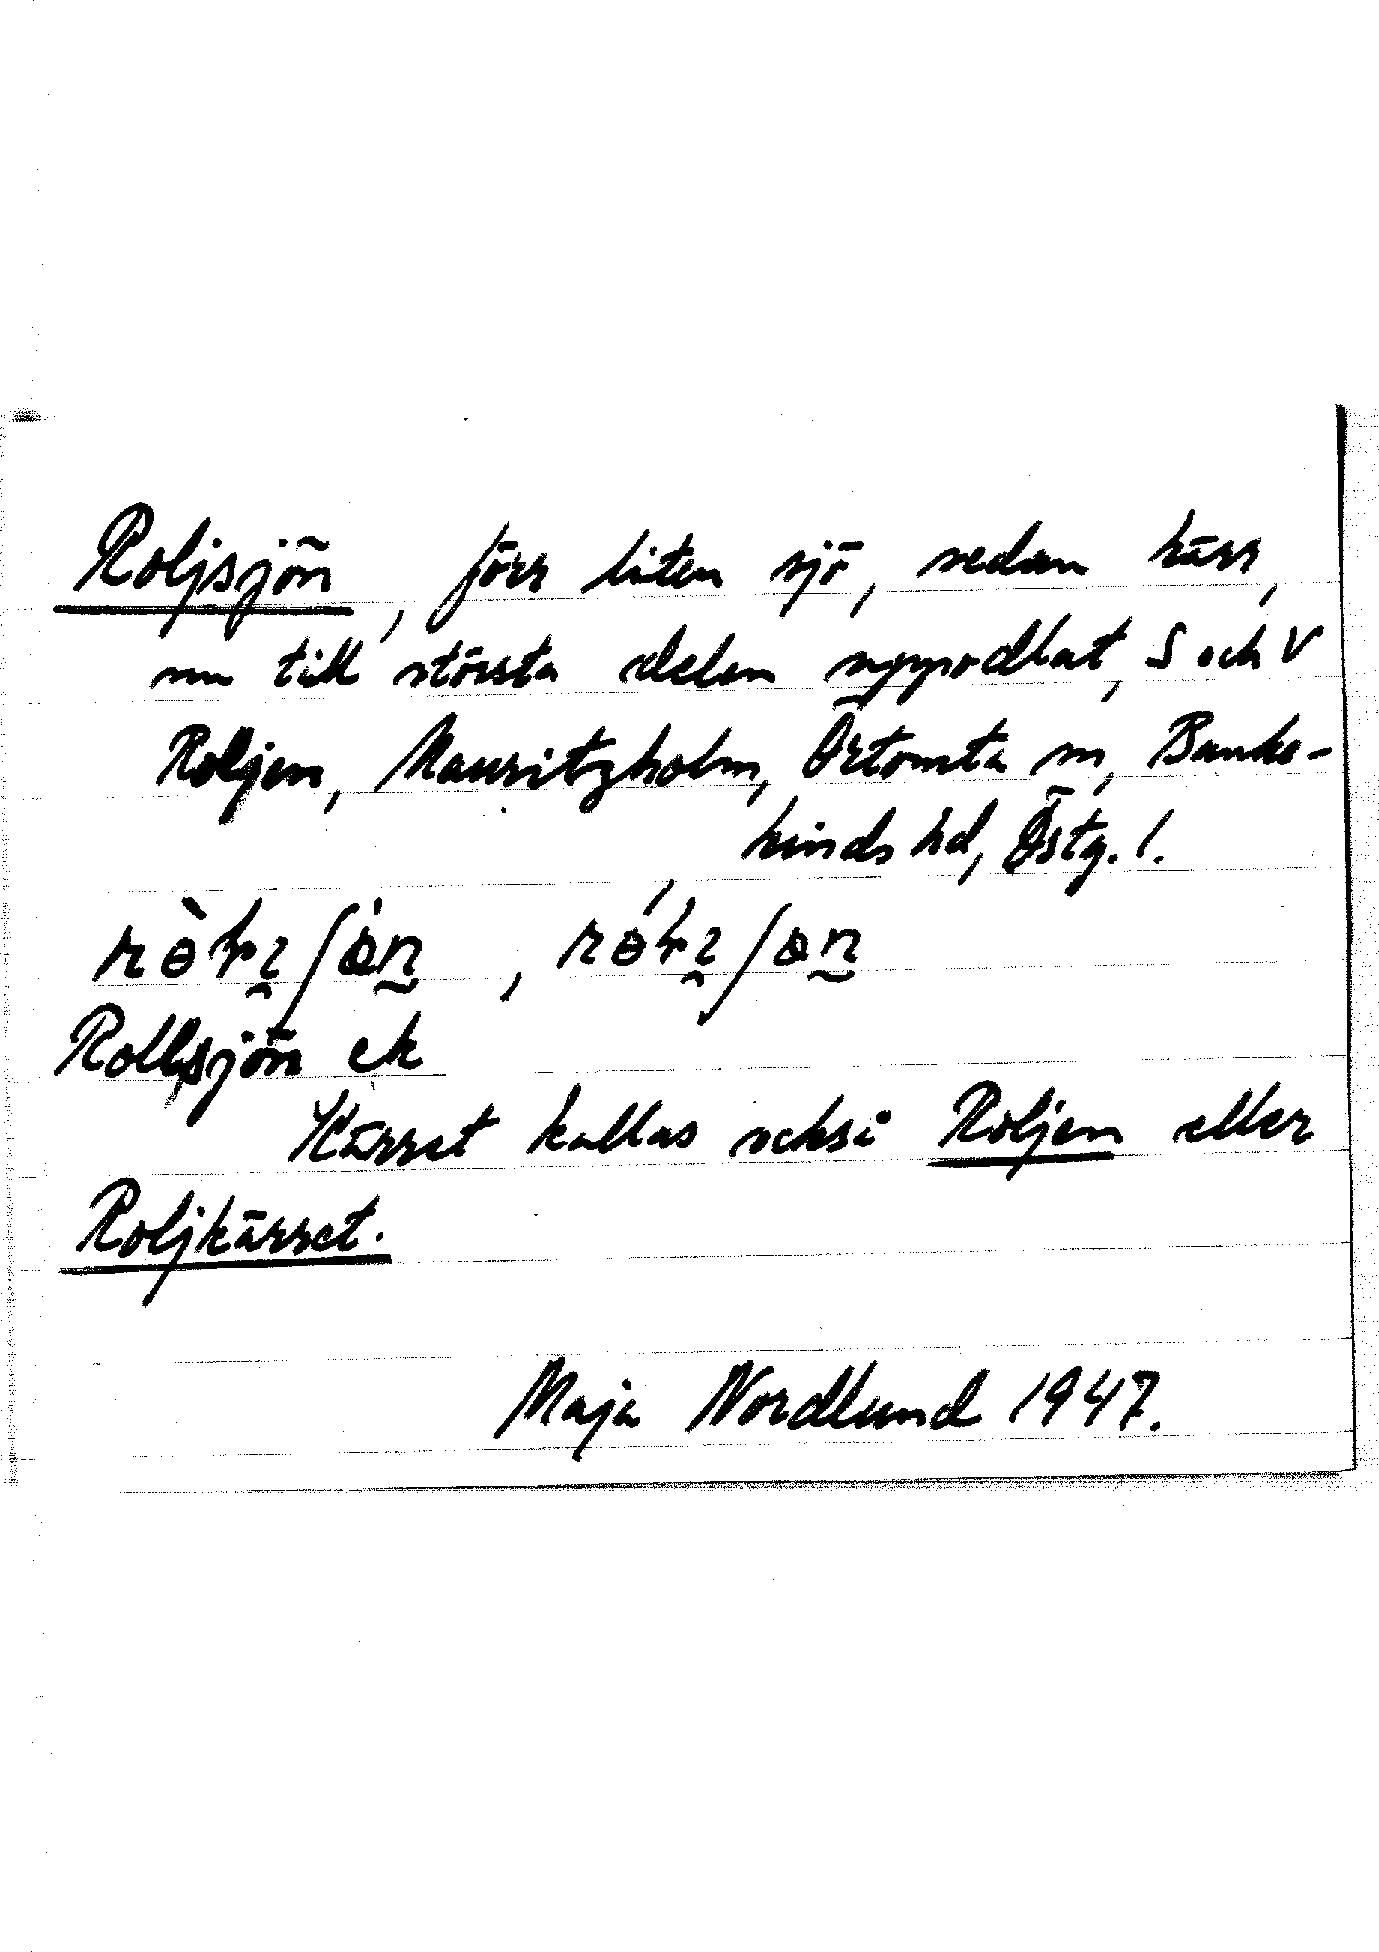 Roljsjön, förr liten sjö, sedan kärr,
nu till största delen uppodlat, S och V
Roljen, Mauritzholm, Örtomta sn, Banke-
kinds hd, Östg. l.
Rolljsjön ek
Kärret kallas också Roljen eller
Roljkärret.
Maja Nordlund 1947.